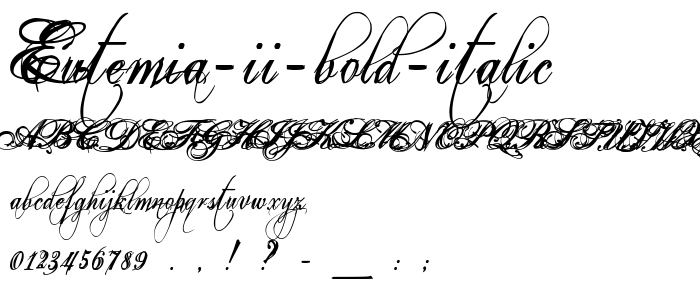 Eutemia-ii-bold-italic
ABCDEFGHIJKLMNOPQRSTUVWX
abcdefghijklmnopqrstuvwxyz
0123456789 . , ! ? - _ : ;